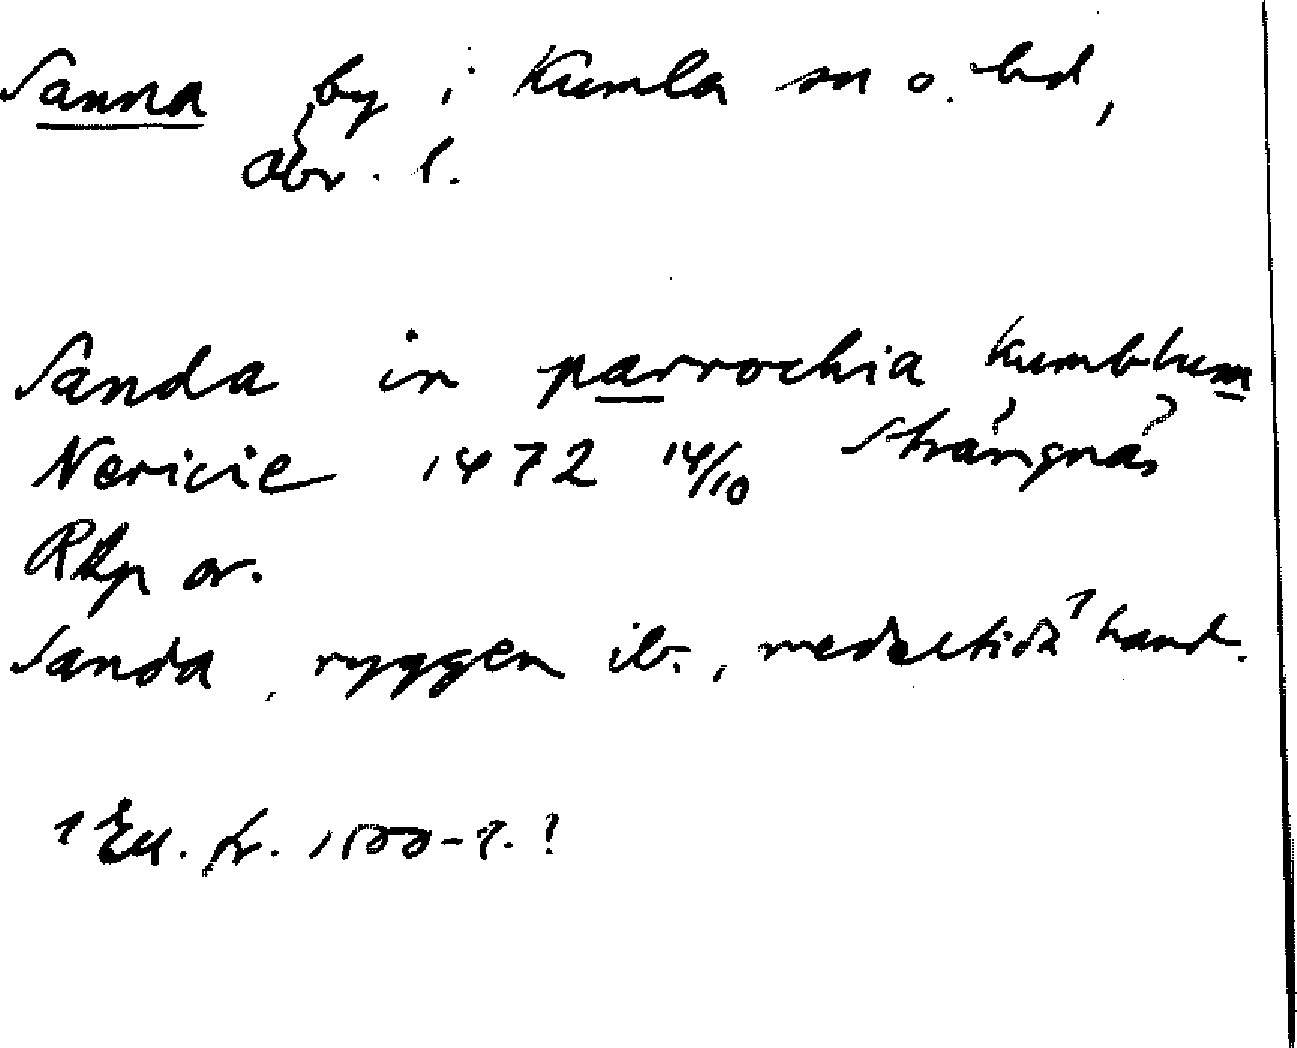 Sanna, by i Kumla sn o. hd,
Öbr. l.
Sanda in parrochia kumblum
Nericie 1472 14/10 Strängnäs
RAp or.
Sanda, ryggen ib., medeltida¹ hand.
¹ Ell. fr. 1500-t. !